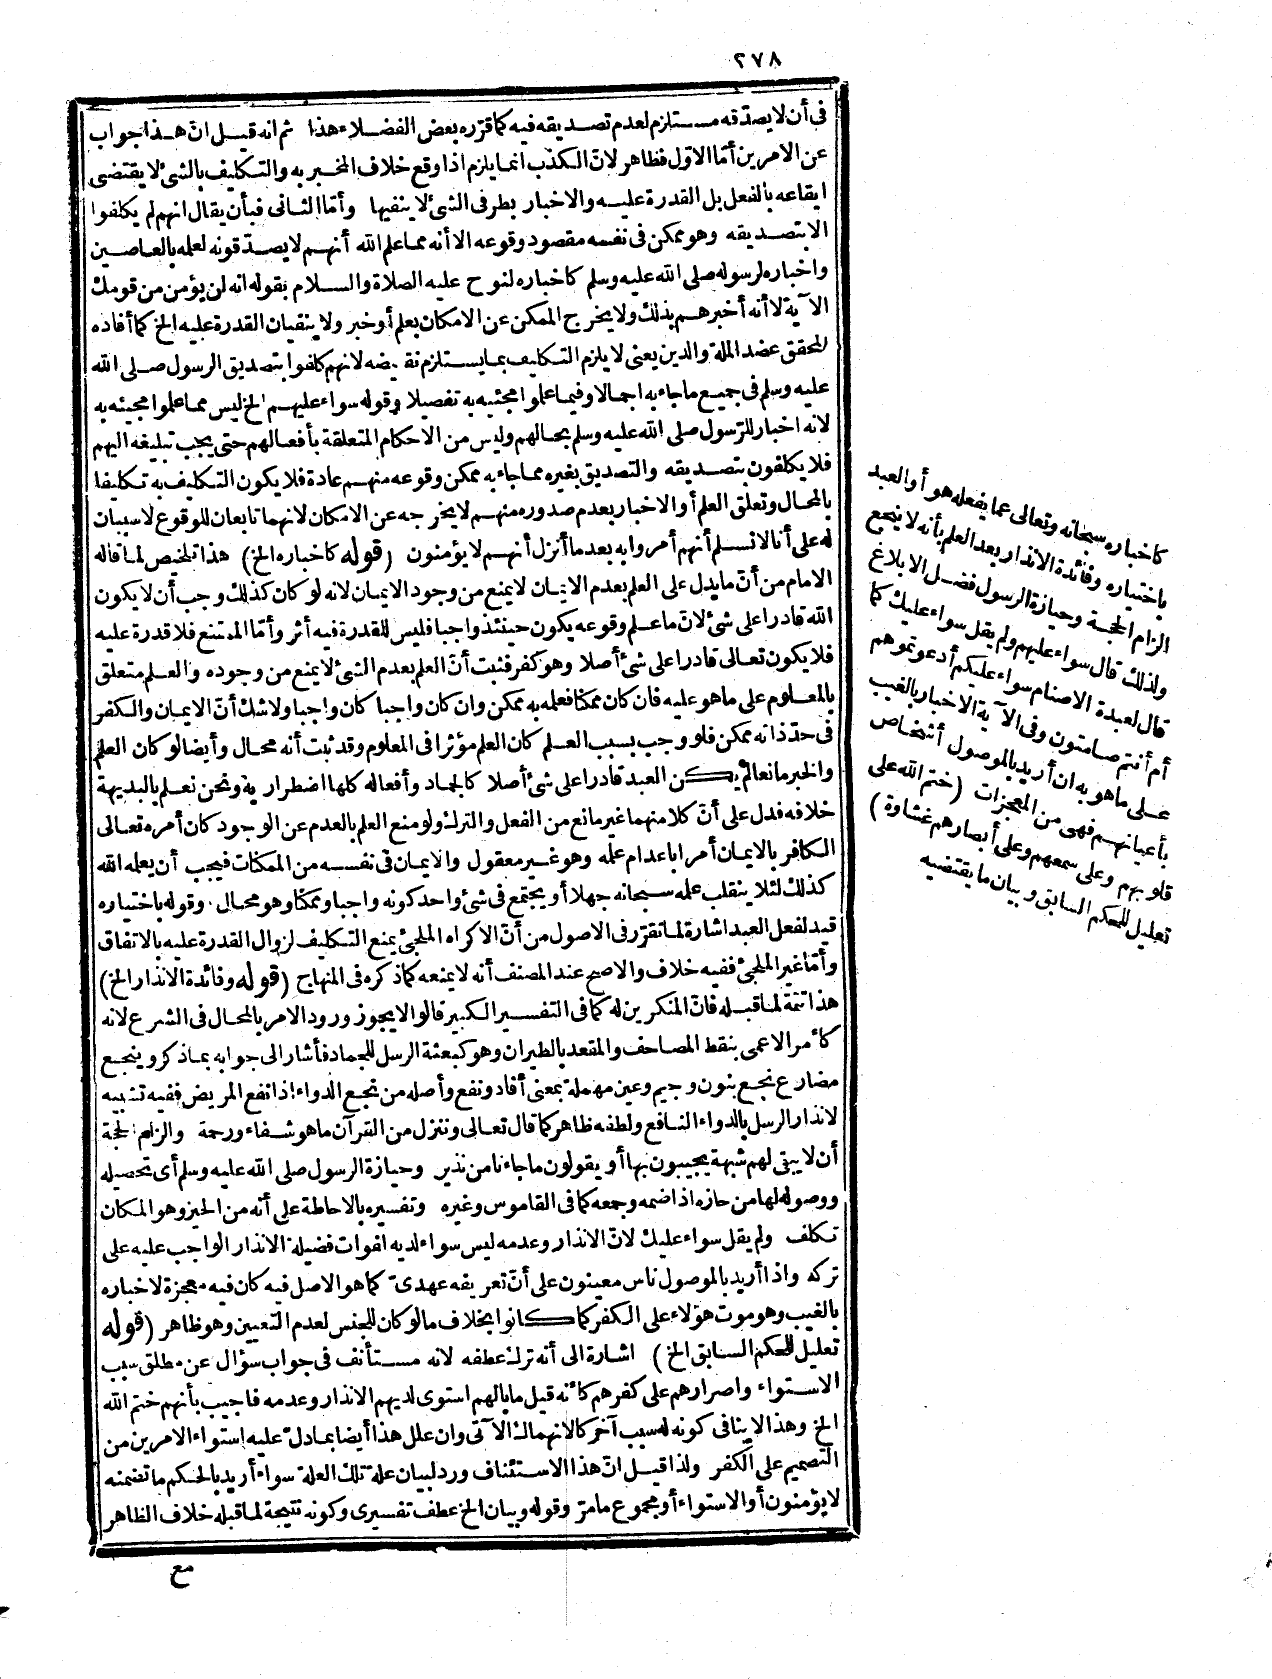 ٢٧٨
فى أن لا يصدّقه مستلزم لعدم تصديقه فيه كما قرّره بعض الفضلاء هذا ثم انه قيل انّ هذا جواب
عن الامرين أمّا الاوّل فظاهر لانّ الكذب انما يلزم اذا وقع خلاف المخبر به والتكليف بالشئ لا يقتضى
ايقاعه بالفعل بل القدرة عليه والاخبار بطرفى الشئ لا ينفيها وأمّا الثانى فبأن يقال انهم لم يكلفوا
الا بتصديقه وهو ممكن فى نفسه مقصود وقوعه الا أنه مما علم الله أنهم لا يصدّقونه لعلمه بالعاصين
واخباره لرسوله صلى الله عليه وسلم كاخباره لنوح عليه الصلاة والسلام بقوله انه لن يؤمن من قومك
الآية لا أنه أخبرهم بذلك ولا يخرج الممكن عن الامكان بعلم أو خبر ولا ينفيان القدرة عليه الخ كما أفاده
المحقق عضد الملة والدين يعنى لا يلزم التكليف بما يستلزم نقيضه لانهم كلفوا بتصديق الرسول صلى الله
عليه وسلم فى جميع ما جاء به اجمالا وفيما علموا مجيئه به تفصيلا وقوله سواء عليهم الخ ليس مما علموا مجيئه به
لانه اخبار للرّسول صلى الله عليه وسلم بحالهم وليس من الاحكام المتعلقة بأفعالهم حتى يجب تبليغه اليهم
فلا يكلفون بتصديقه والتصديق بغيره مما جاء به ممكن وقوعه منهم عادة فلا يكون التكليف به تكليفا
بالمحال وتعلق العلم أو الاخبار بعدم صدوره منهم لا يخرجه عن الامكان لانهما تابعان للوقوع لا سببان
له على أنا لا نسلم أنهم أمروا به بعد ما أنزل أنهم لا يؤمنون (قوله كاخباره الخ) هذا تلخيص لما قاله
الامام من أنّ ما يدل على العلم بعدم الايمان لا يمنع من وجود الايمان لانه لو كان كذلك وجب أن لا يكون
الله قادرا على شئ لانّ ما علم وقوعه يكون حينئذ واجبا فليس للقدرة فيه أثر وأمّا الممتنع فلا قدرة عليه
فلا يكون تعالى قادرا على شئ أصلا وهو كفر فثبت أنّ العلم بعدم الشئ لا يمنع من وجوده والعلم متعلق
بالمعلوم على ما هو عليه فان كان ممكنا فعله به ممكن وان كان واجبا كان واجبا ولا شك أنّ الايمان والكفر
فى حدّ ذاته ممكن فلو وجب بسبب العلم كان العلم مؤثرا فى المعلوم وقد ثبت أنه محال وأيضا لو كان العلم
والخبر مانعا لم يكن العبد قادرا على شئ أصلا كالجماد وأفعاله كلها اضطرارية ونحن نعلم بالبديهة
خلافه فدل على أنّ كلا منهما غير مانع من الفعل والترك ولو منع العلم بالعدم عن الوجود كان أمره تعالى
الكافر بالايمان أمرا باعدام علمه وهو غير معقول والايمان فى نفسه من الممكنات فيجب أن يعلمه الله
كذلك لئلا ينقلب علمه سبحانه جهلا أو يجتمع فى شئ واحد كونه واجبا وممكنا وهو محال. وقوله باختياره
قيد لفعل العبد اشارة لما تقرّر فى الاصول من أنّ الاكراه الملجئ يمنع التكليف لزوال القدرة عليه بالاتفاق
وأمّا غير الملجئ ففيه خلاف والاصح عند المصنف أنه لا يمنعه كما ذكره فى المنهاج (قوله وفائدة الانذار الخ)
هذا تتمة لما قبله فانّ المنكرين له كما فى التفسير الكبير قالوا لا يجوز ورود الامر بالمحال فى الشرع لانه
كأمر الاعمى بنقط المصاحف والمقعد بالطيران وهو كبعثة الرسل للجماد فأشار الى جوابه بما ذكر وينجع
مضارع نجع بنون وجيم وعين مهملة بمعنى أفاد ونفع وأصله من نجع الدواء اذا نفع المريض ففيه تشبيه
لانذار الرسل بالدواء النافع ولطفه ظاهر كما قال تعالى وننزل من القرآن ما هو شفاء ورحمة والزام الحجة
أن لا يبقى لهم شبهة يجيبون بها أو يقولون ما جاءنا من نذير وحيازة الرسول صلى الله عليه وسلم أى تحصيله
ووصوله لها من حازه اذا ضمه وجمعه كما فى القاموس وغيره وتفسيره بالاحاطة على أنّه من الحيز وهو المكان
تكلف ولم يقل سواء عليك لانّ الانذار وعدمه ليس سواء لديه لفوات فضيلة الانذار الواجب عليه على
تركه واذا أريد بالموصول ناس معينون على أنّ تعريفه عهدىّ كما هو الاصل فيه كان فيه معجزة لاخباره
بالغيب وهو موت هؤلاء على الكفر كما كانوا بخلاف ما لو كان للجنس لعدم التعيين وهو ظاهر (قوله
تعليل للحكم السابق الخ) اشارة الى أنه ترك عطفه لانه مستأنف فى جواب سؤال عن مطلق سبب
الاستواء واصرارهم على كفرهم كأنه قيل ما بالهم استوى لديهم الانذار وعدمه فاجيب بأنهم ختم الله
الخ وهذا لا ينافى كونه له سبب آخر كالانهماك الآتى وان علل هذا أيضا بما دلّ عليه استواء الامرين من
التصميم على الكفر ولذا قيل انّ هذا الاستئناف ورد لبيان علة تلك العلة سواء أريد بالحكم ما تضمنه
لا يؤمنون أو الاستواء أو مجموع ما مرّ وقوله وبيان الخ عطف تفسيرى وكونه نتيجة لما قبله خلاف الظاهر
مع
كاخباره سبحانه وتعالى عما يفعله هو أو العبد
باختياره وفائدة الانذار بعد العلم بأنه لا ينجع
الزام الحجة وحيازة الرسول فضل الابلاغ
ولذلك قال سواء عليهم ولم يقل سواء عليك كما
قال لعبدة الاصنام سواء عليكم أدعوتموهم
أم أنتم صامتون وفى الآية الاخبار بالغيب
على ما هو به ان أريد بالموصول أشخاص
بأعيانهم فهى من المعجزات (ختم الله على
قلوبهم وعلى سمعهم وعلى أبصارهم غشاوة)
تعليل للحكم السابق وبيان ما يقتضيه